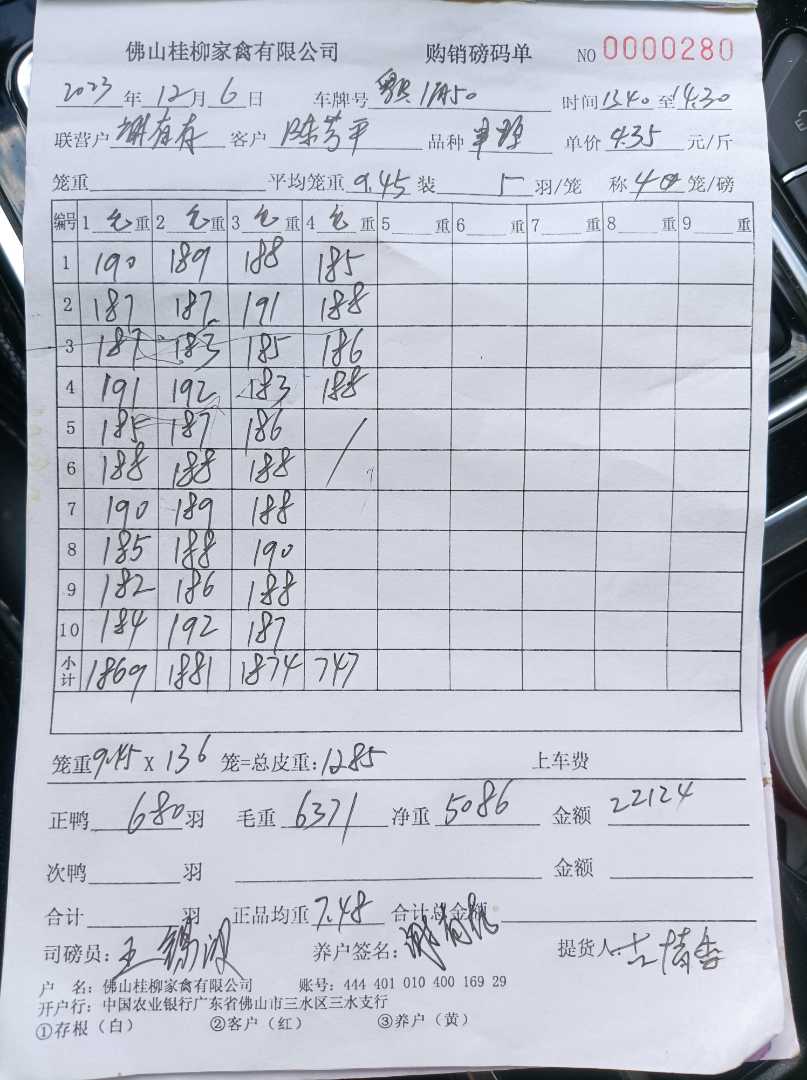 佛山桂柳家禽有限公司 购销磅码单 NO 0000280
2023年12月6日 车牌号 时间13.40至14.30
联营户 客户 陈芳平 品种 单价4.35元/斤
笼重 平均笼重9.45装5羽/笼 称40笼/磅
编号 1毛重 2毛重 3毛重 4毛重 5重 6重 7重 8重 9重
1 190 189 188 185
2 187 187 191 188
3 187 183 185 186
4 191 192 183 188
5 185 187 186 /
6 188 188 188
7 190 189 188
8 185 188 190
9 182 186 188
10 184 192 187
小计 1869 1881 1874 747
笼重9.45X136笼=总皮重:1285 上车费
正鸭680羽 毛重6371净重5086 金额22124
次鸭羽 金额
合计羽 正品均重7.48 合计总金额
司磅员: 养户签名: 提货人:
户 名: 佛山桂柳家禽有限公司 账号: 444 401 010 400 169 29
开户行: 中国农业银行广东省佛山市三水区三水支行
①存根(白) ②客户(红) ③养户(黄)